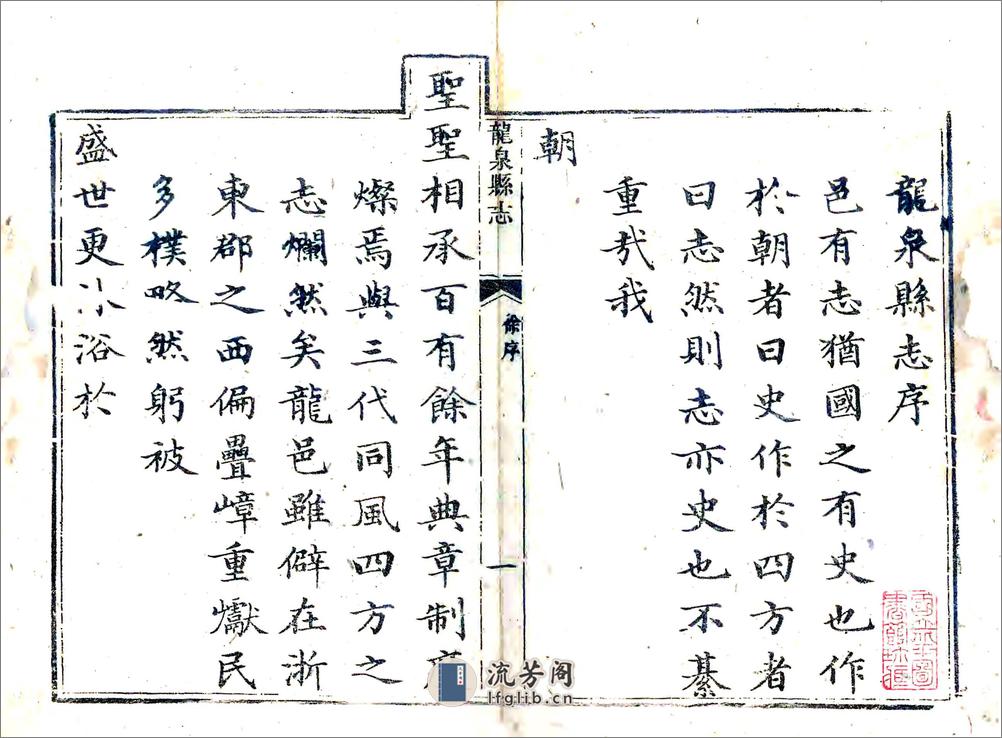 龍泉縣志序
邑有志猶國之有史也作
於朝者曰史作於四方者
曰志然則志亦史也不綦
重哉我
朝
龍泉縣志
徐序
一
聖聖相承百有餘年典章制
燦焉與三代同風四方之
志爛然矣龍邑雖僻在浙
東郡之西偏疊嶂重巘民
多樸略然躬被
盛世更浴於
流芳阁
lfglib.cn